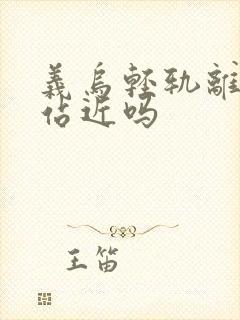 義烏輕軌離
佔近吗
王笛